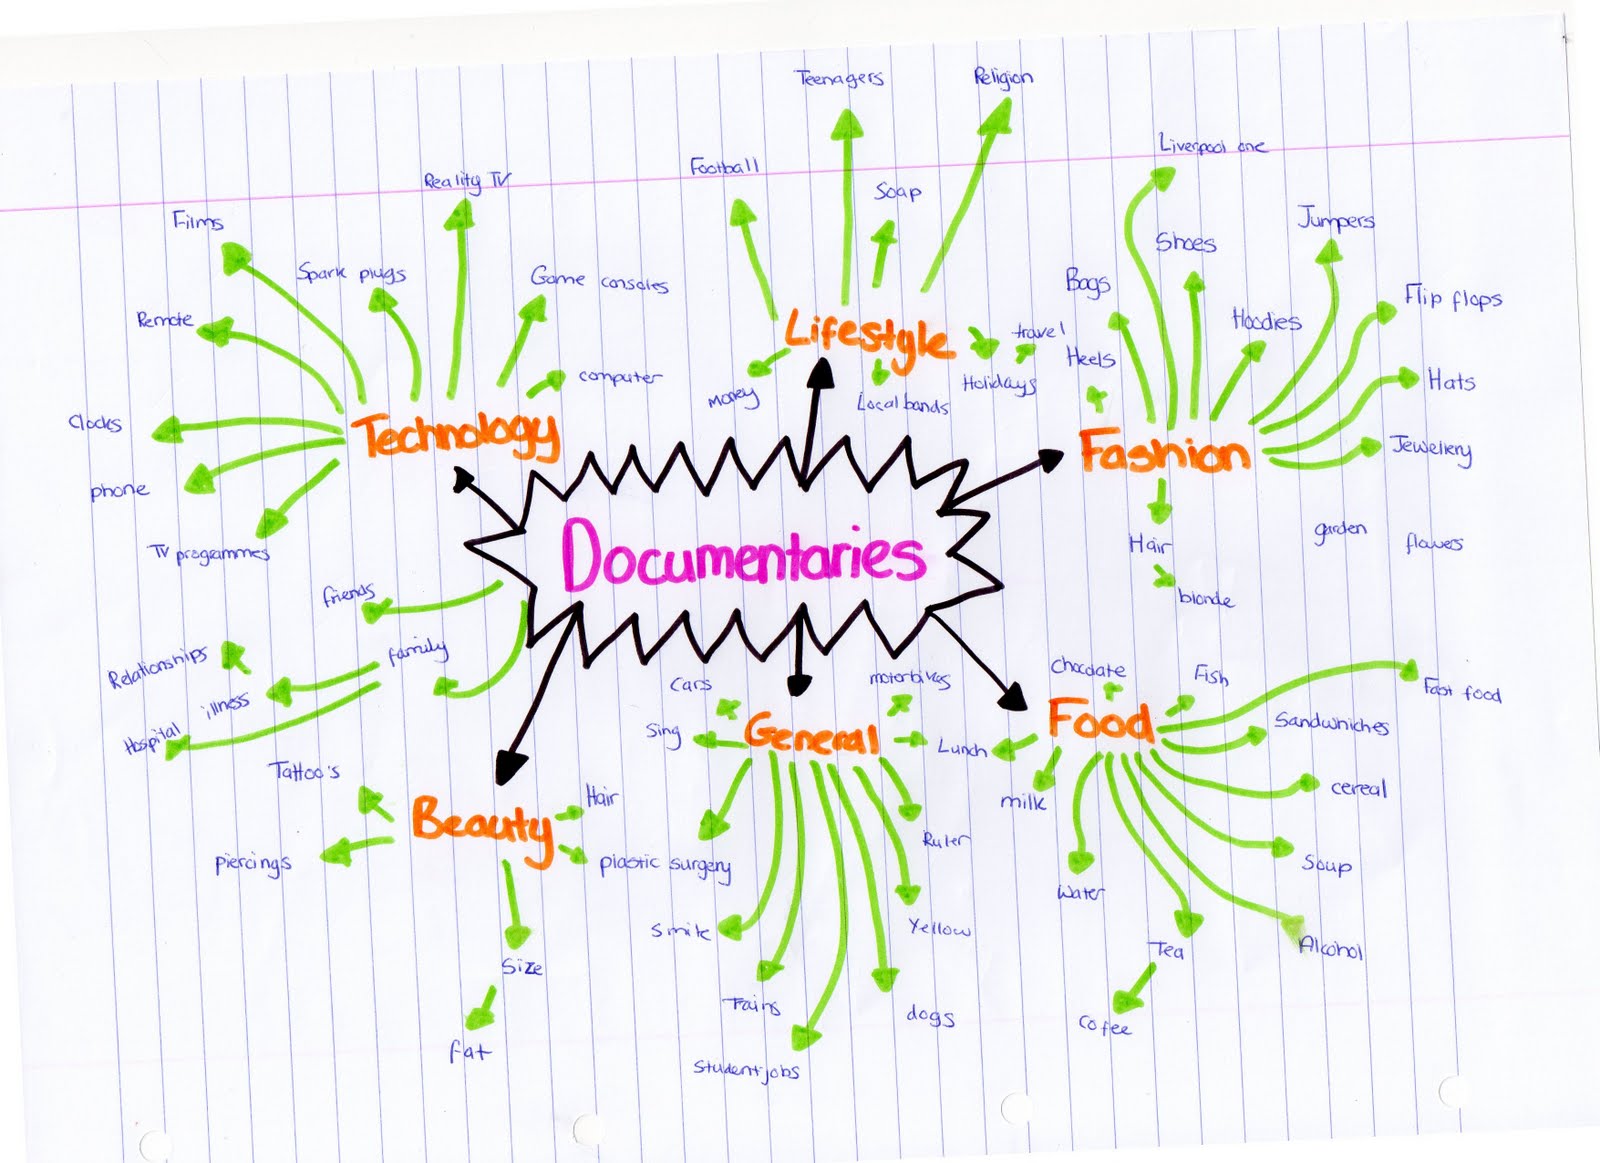 Documentaries
Technology
Films
Remote
Spark plugs
Reality TV
Game consoles
computer
Clocks
phone
TV programmes
Lifestyle
Football
Teenagers
Soap
Religion
travel
Holidays
Local bands
money
Fashion
Heels
Bags
Liverpool one
Shoes
Hoodies
Jumpers
Flip flops
Hats
Jewellery
Hair
blonde
garden
flowers
friends
family
Relationships
illness
Hospital
Beauty
Tattoo's
piercings
Hair
plastic surgery
Size
fat
General
Cars
Sing
motorbikes
Lunch
Ruler
Yellow
dogs
Student jobs
Smile
Food
Chocolate
Fish
Fast food
Sandwniches
cereal
Soup
Alcohol
Tea
Cofee
Water
milk